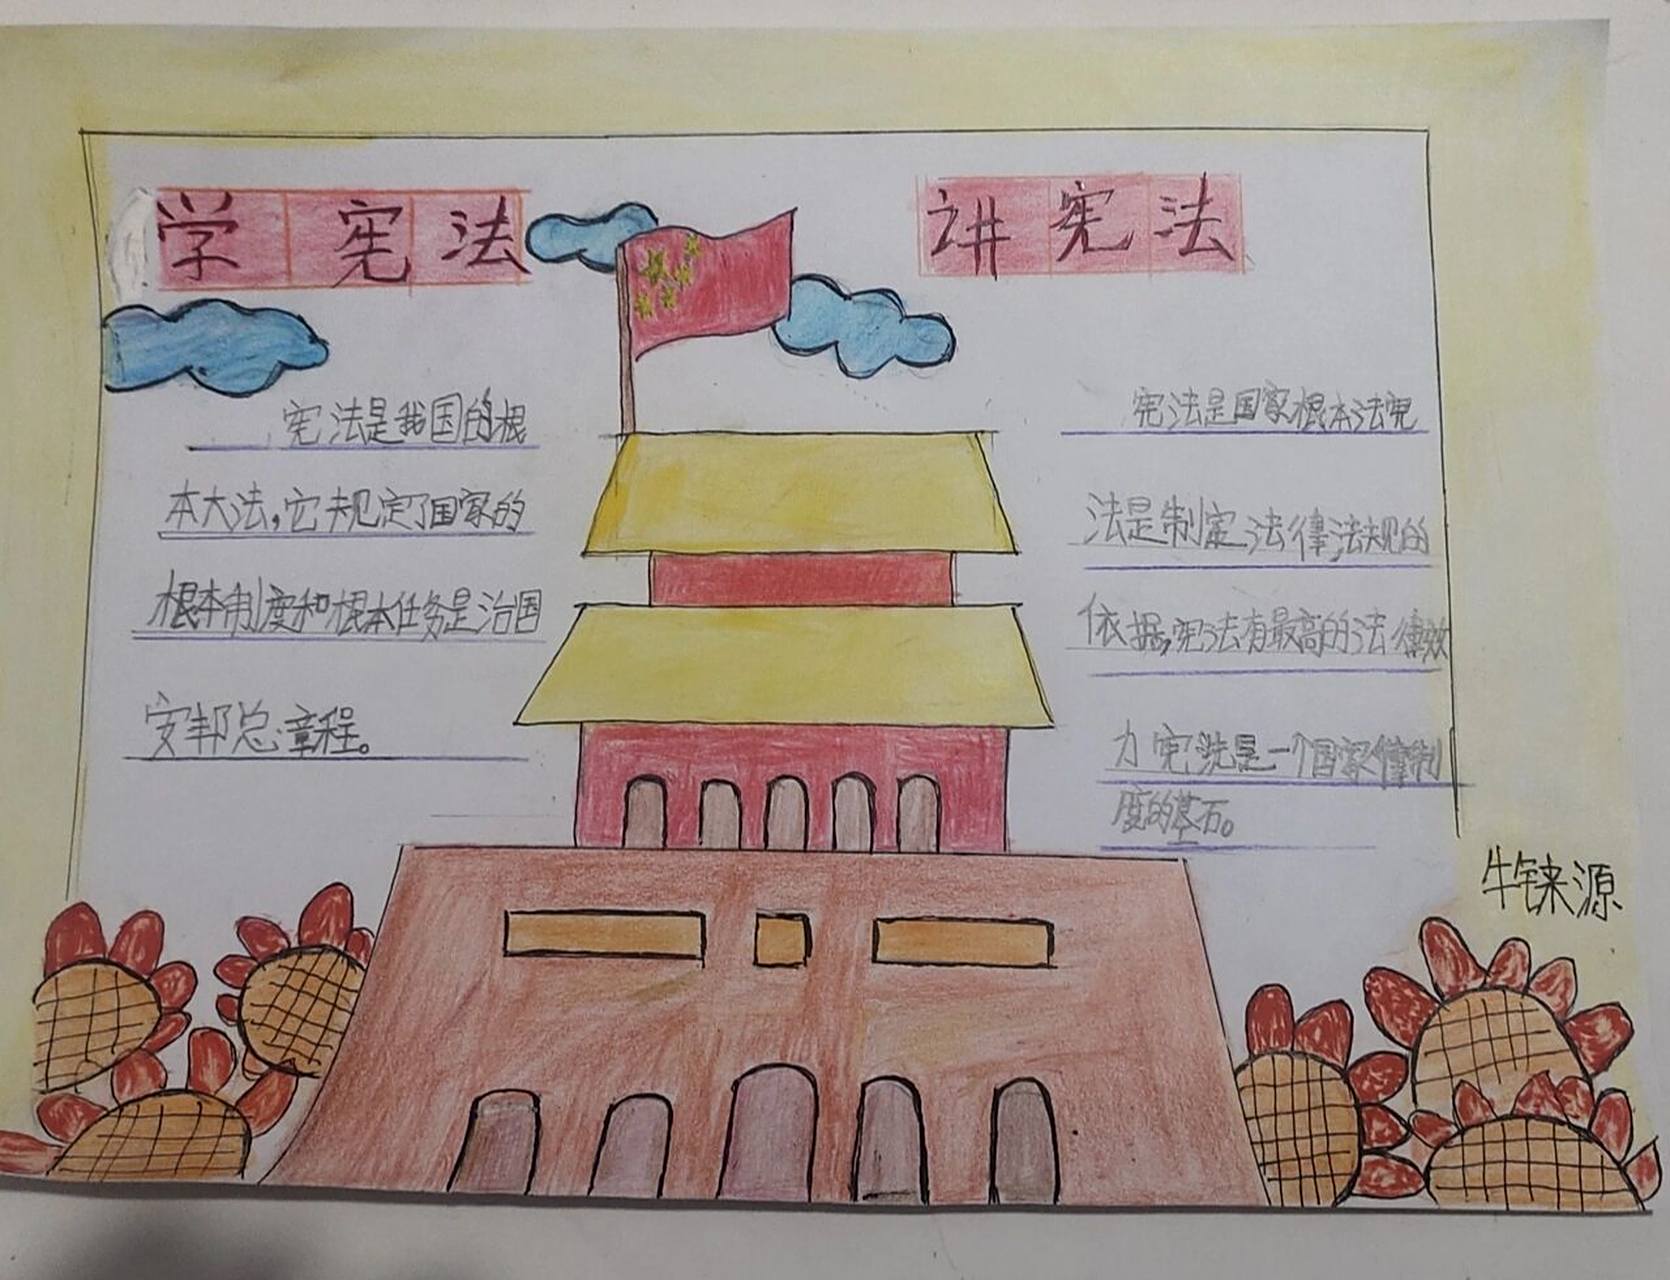 学宪法
讲宪法
宪法是我国的根
本大法,它规定了国家的
根本制度和根本任务是治国
安邦总章程。
宪法是国家根本法宪
法是制定法律法规的
依据,宪法有最高的法律效
力宪法是一个国家律制
度的基石。
牛铼源